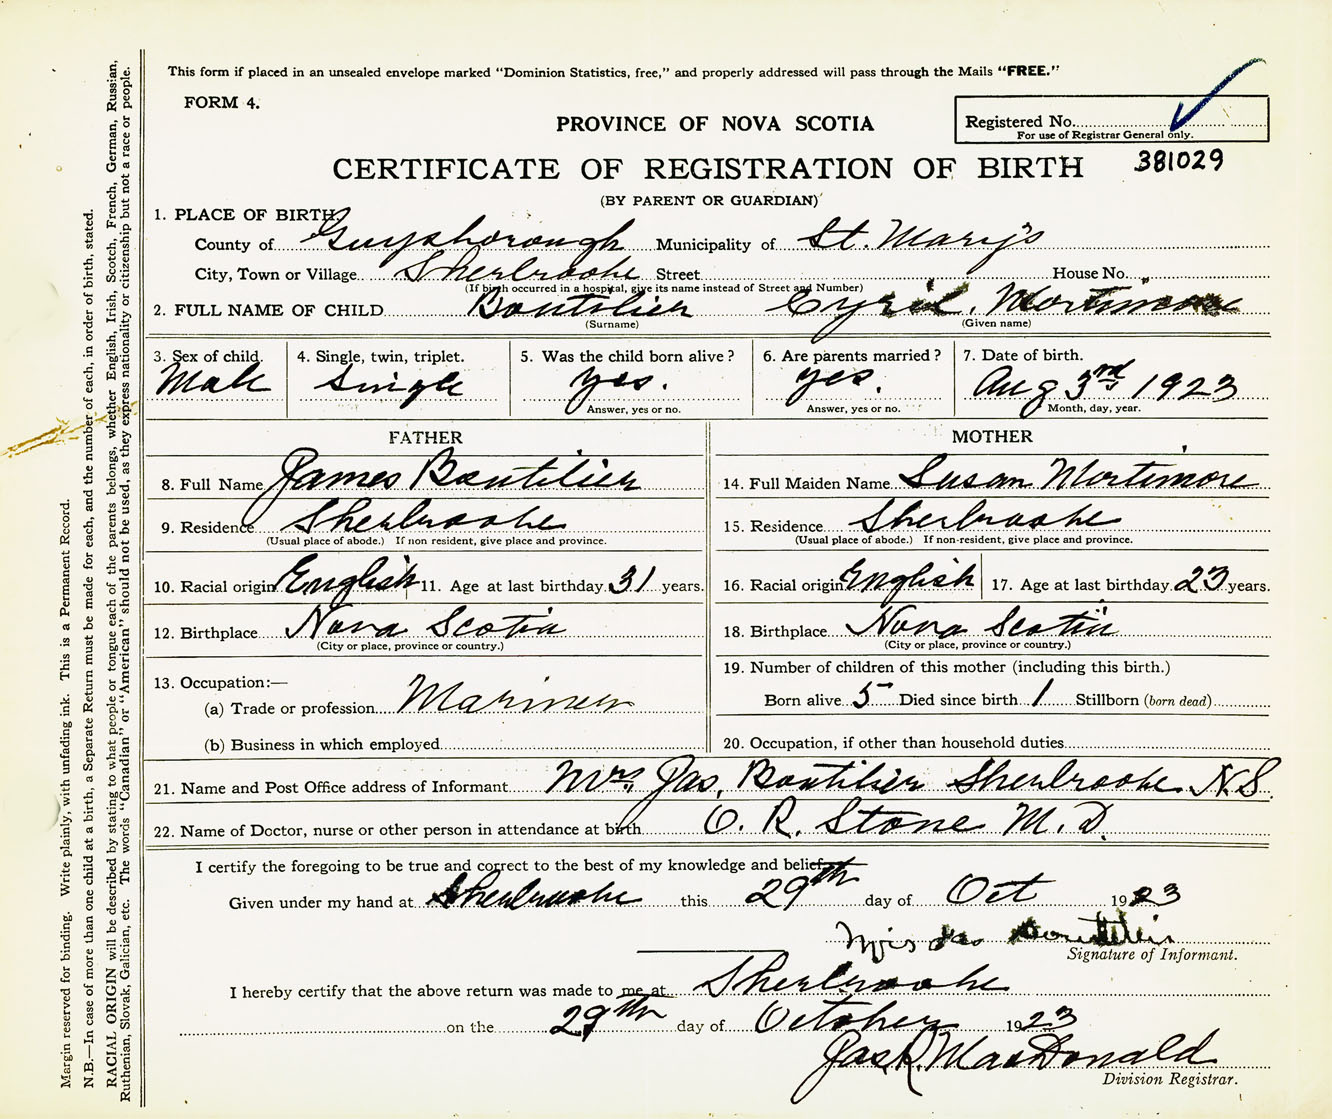 This form if placed in an unsealed envelope marked "Dominion Statistics, free," and properly addressed will pass through the Mails "FREE."
FORM 4.
Registered No.
For use of Registrar General only.
PROVINCE OF NOVA SCOTIA
CERTIFICATE OF REGISTRATION OF BIRTH
381029
(BY PARENT OR GUARDIAN)
1. PLACE OF BIRTH
County of Guysborough Municipality of St. Mary's
City, Town or Village Sherbrooke Street House No.
(If birth occurred in a hospital, give its name instead of Street and Number)
2. FULL NAME OF CHILD Boutilier Cyril. Mortimore
(Surname) (Given name)
3. Sex of child. 4. Single, twin, triplet. 5. Was the child born alive? 6. Are parents married? 7. Date of birth.
Male Single yes. yes. Aug 3rd 1923
Answer, yes or no. Answer, yes or no. Month, day, year.
FATHER
8. Full Name James Boutilier
9. Residence Sherbrooke
(Usual place of abode.) If non resident, give place and province.
10. Racial origin English 11. Age at last birthday 31 years.
12. Birthplace Nova Scotia
(City or place, province or country.)
13. Occupation:—
(a) Trade or profession Mariner
(b) Business in which employed
MOTHER
14. Full Maiden Name Susan Mortimore
15. Residence Sherbrooke
(Usual place of abode.) If non-resident, give place and province.
16. Racial origin English 17. Age at last birthday 23 years.
18. Birthplace Nova Scotia
(City or place, province or country.)
19. Number of children of this mother (including this birth.)
Born alive 5 Died since birth 1 Stillborn (born dead)
20. Occupation, if other than household duties
21. Name and Post Office address of Informant Mrs. Jas. Boutilier Sherbrooke N.S.
22. Name of Doctor, nurse or other person in attendance at birth O. R. Stone M. D.
I certify the foregoing to be true and correct to the best of my knowledge and belief.
Given under my hand at Sherbrooke this 29th day of Oct 1923
Mrs Jas Boutilier
Signature of Informant.
I hereby certify that the above return was made to me at Sherbrooke
on the 29th day of October 1923
Jas. R. MacDonald
Division Registrar.
Margin reserved for binding. Write plainly, with unfading ink. This is a Permanent Record.
N.B.—In case of more than one child at a birth, a Separate Return must be made for each, and the number of each, in order of birth, stated.
RACIAL ORIGIN will be described by stating to what people or tongue each of the parents belongs, whether English, Irish, Scotch, French, German, Russian,
Ruthenian, Slovak, Galician, etc. The words "Canadian" or "American" should not be used, as they express nationality or citizenship but not a race or people.